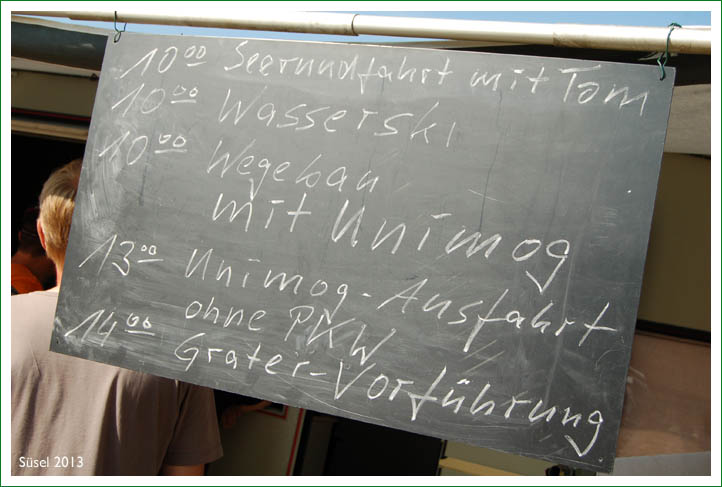 10⁰⁰ Seerundfahrt mit Tom
10⁰⁰ Wasserski
10⁰⁰ Wegebau
mit Unimog
13⁰⁰ Unimog-Ausfahrt
ohne PKW
14⁰⁰ Grater-Vorführung
Süsel 2013